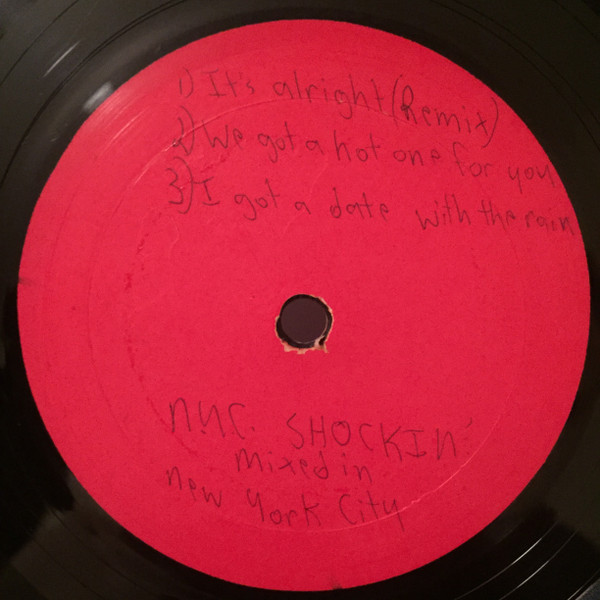 1) It's alright (Remix)
2) We got a hot one for you
3) I got a date with the rain
N.Y.C. SHOCKIN'
Mixed in
New York City